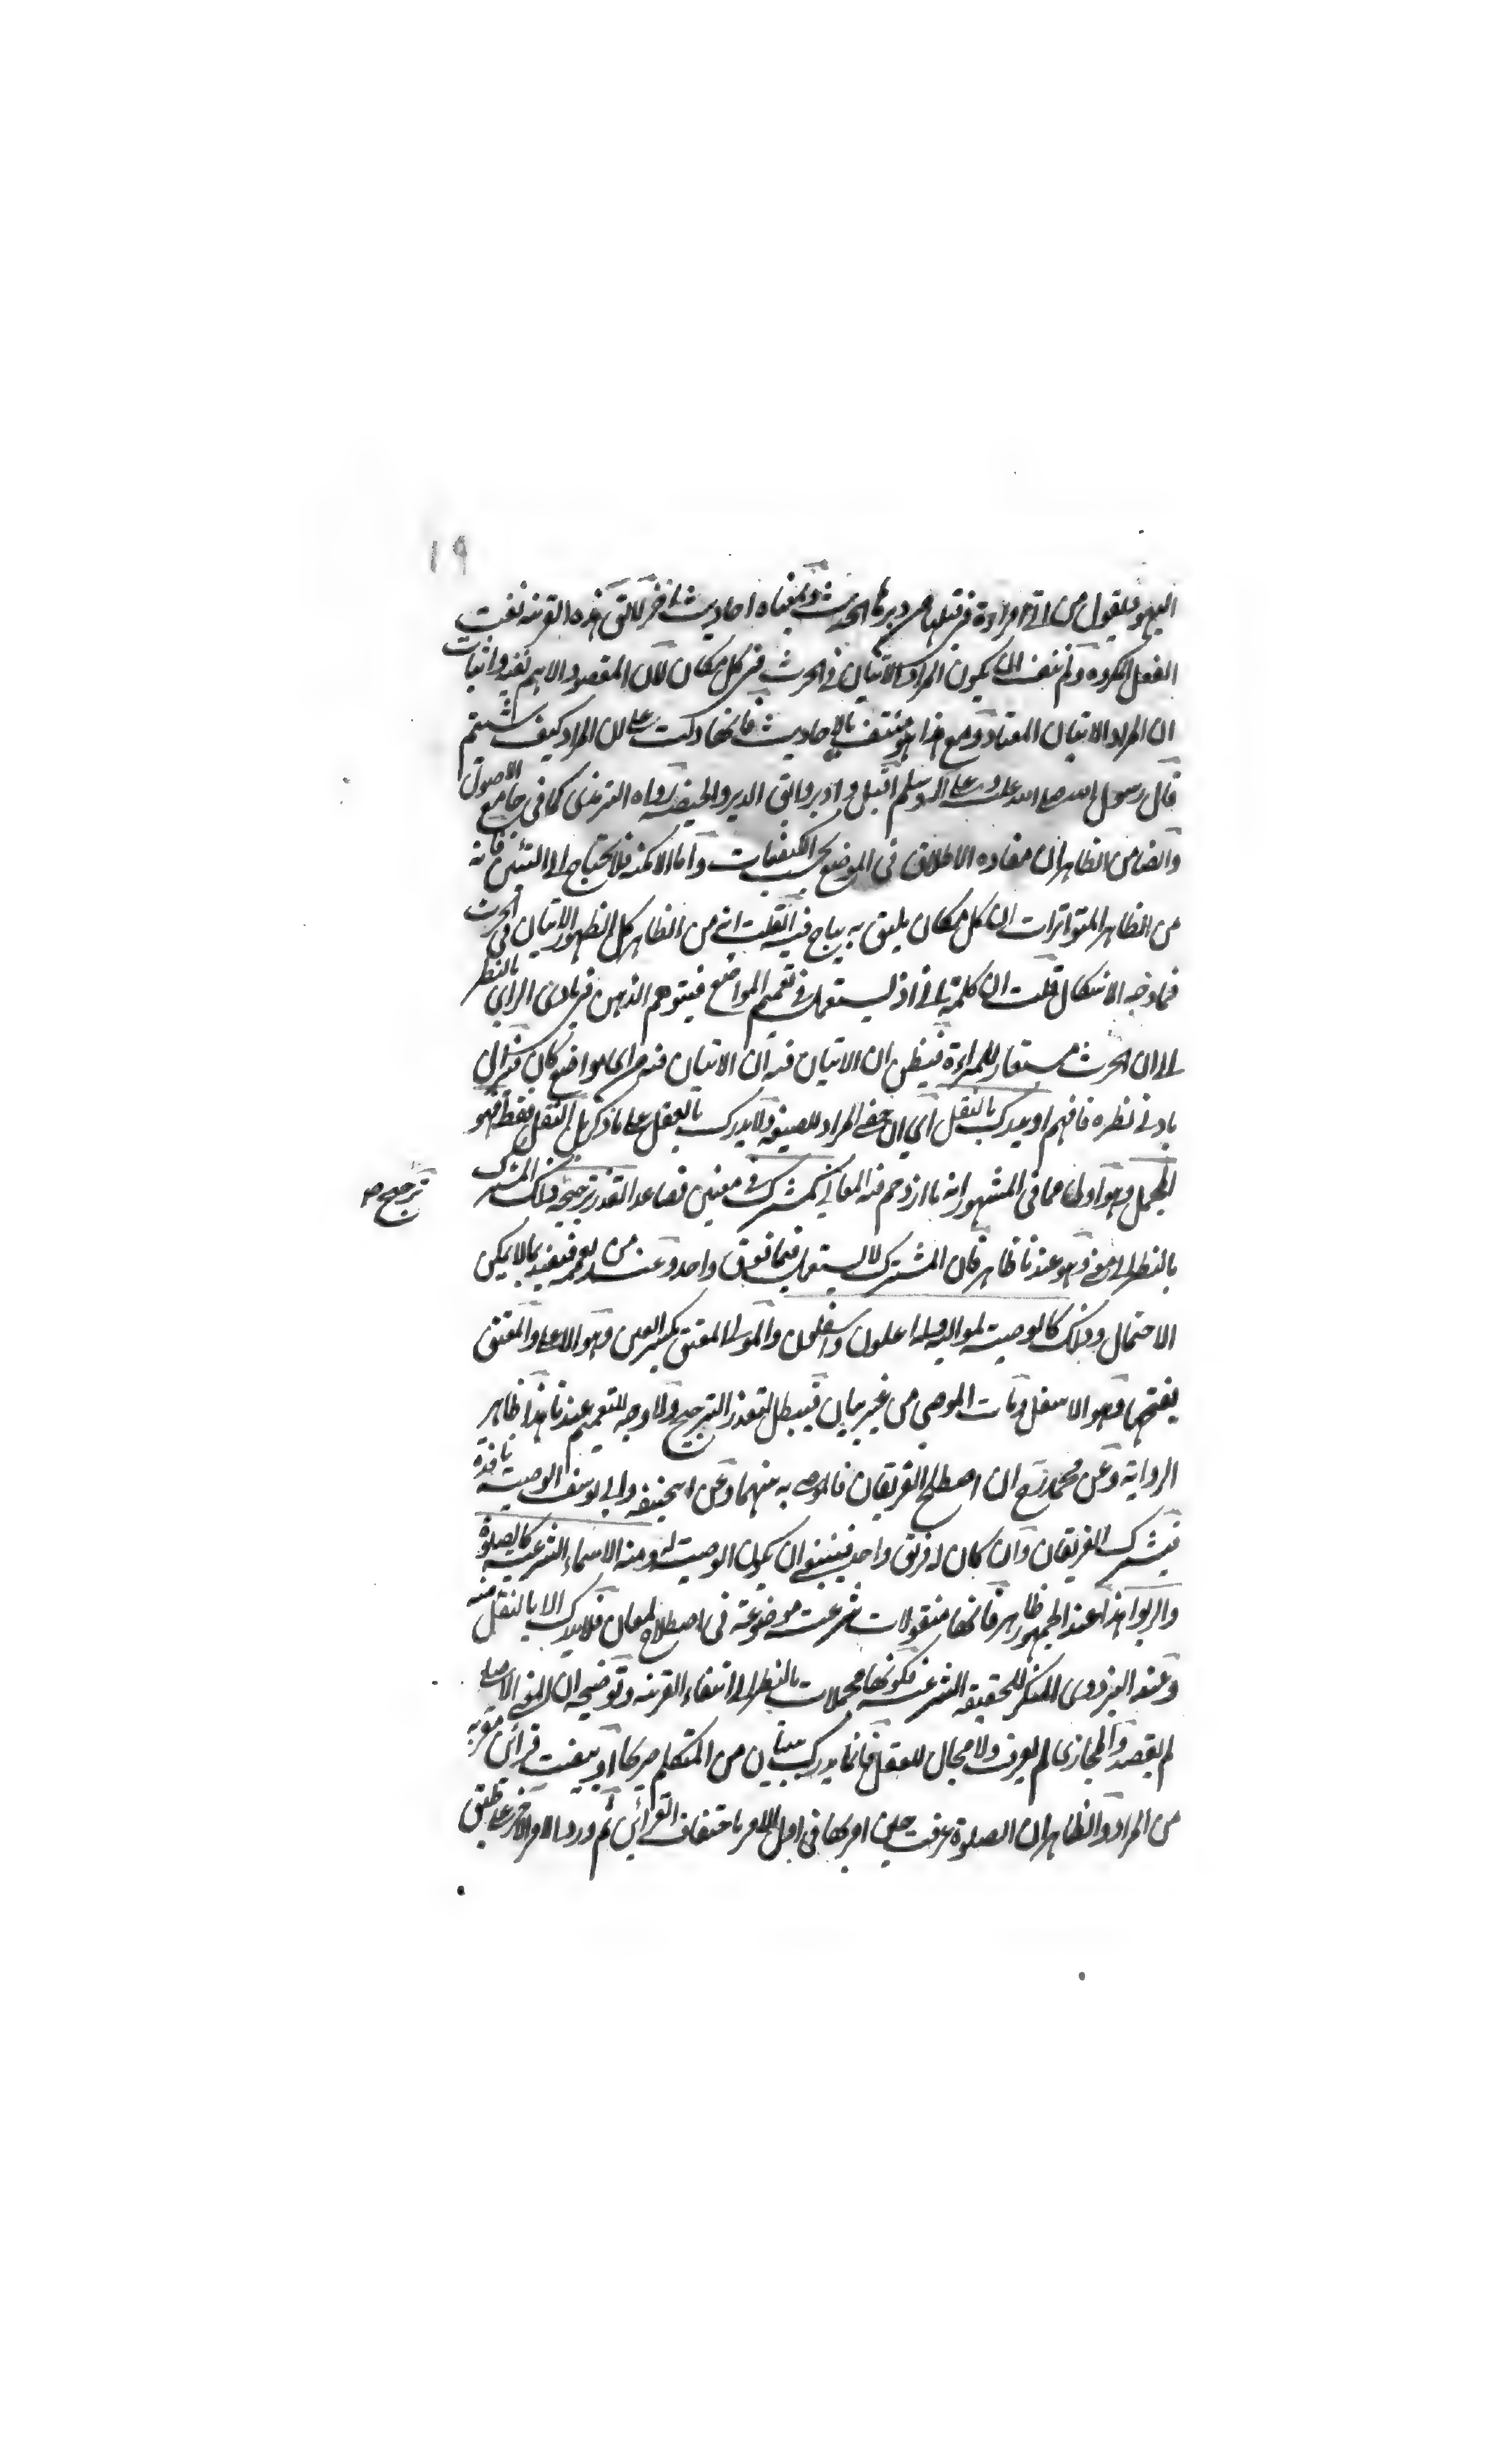 ١٩
اليهود يقول من اتى امرأة في قبلها من دبرها الحديث وبمعناه احاديث اخر لا لتى هذه القرينة نفت
الفعل المكروه ولم ينف ان يكون المراد الاتيان في الحرث في كل مكان لان المقصود الاهم نفيه واثبات
ان المراد الاتيان المعتاد ومع هذا هو منتف بالاحاديث فانها دلت على ان المراد كيف شئتم
قال رسول الله صلى الله عليه وعلى آله وسلم اقبل وادبر واتق الدبر والحيضة رواه الترمذي كما في جامع الاصول
وايضا من الظاهر ان مفاده الاطلاق في الموضع بحسب الكيفيات واما الامكنة فلا يحتاج الى التبيين فانه
من الظاهر المتواترات ان كل مكان يليق به يباح فيه انقلت اني من الظاهر كل الظهور الاتيان في الحرث
فما وجه الاشكال قلت ان كلمة انى اذ يستعمل في تعميم المواضع فيتوهم الذهن في بادى الراى بالنظر
الى ان الحرث مستعار للمراءة فيظن ان الاتيان فيه ان الاتيان فيه من اى مواضع كان فيزال
بادنى نظره فافهم او يدرك بالنقل اى ان خفى المراد للصيغة ولا يدرك بالعقل على ما ذكر بل النقل فقط فهو
المجمل وهو اولى مما في المشهور انه ما ازدحم فيه المعاني كمشترك في معنيين فصاعدا تعذر ترجيحه وذلك المشترك
ترجيح صـ
بالنظر الى وهو عندنا ظاهر فان المشترك لا يستعمل فيما فوق واحد وعند من يعممه فيقيد بما لا يمكن
الاحتمال وذلك كالوصية لمواليه وله اعلون واسفلون والمولى المعتق بكسر العين وهو الاعلى والمعتق
بفتحها وهو الاسفل ومات الموصى من غير بيان فيبطل لتعذر الترجيح ولا وجه للتعميم عندنا هذا ظاهر
الرواية وعن محمد رح ان اصطلح الفريقان فالموصى به منهما وعن ابيحنيفه وابى يوسف الوصية نافذة
فيشترك الفريقان وان كان له فريق واحد فينبغى ان يكون الوصية له ومنه الاسماء الشرعية كالصلوة
والربوا هذا عند الجمهور ظاهر فانها منقولات شرعية موضوعة في اصطلاح لمعان فلا يدرك الا بالنقل منه
وعند البزدوى المنكر للحقيقة الشرعية فكونها مجملات بالنظر الى انتفاء القرينة وتوضيحه ان المعنى الاصلى
لم يقصد والمجازى لم يعرف ولا مجال للعقل فانما يدرك ببيان من المتكلم صريحا او ببعث قرائن مقربة
من المراد والظاهر ان الصلوة عرفت حين امر بها في اول الامر باحتفاف القرائن ثم ورد الامر الآخر على طبق